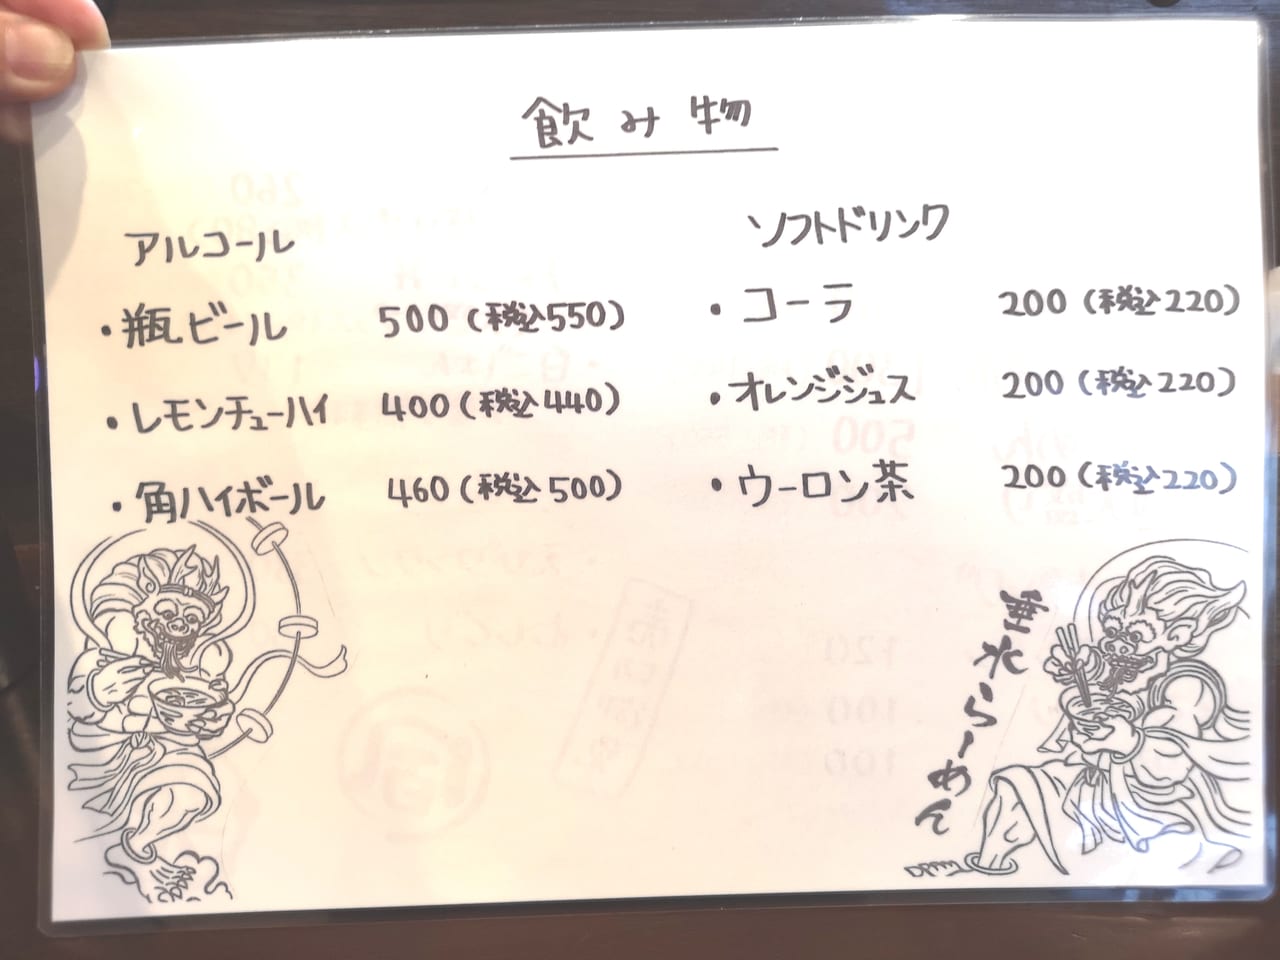 飲み物
アルコール
・瓶ビール 500(税込550)
・レモンチューハイ 400(税込440)
・角ハイボール 460(税込500)
ソフトドリンク
・コーラ 200(税込220)
・オレンジジュース 200(税込220)
・ウーロン茶 200(税込220)
垂水らーめん